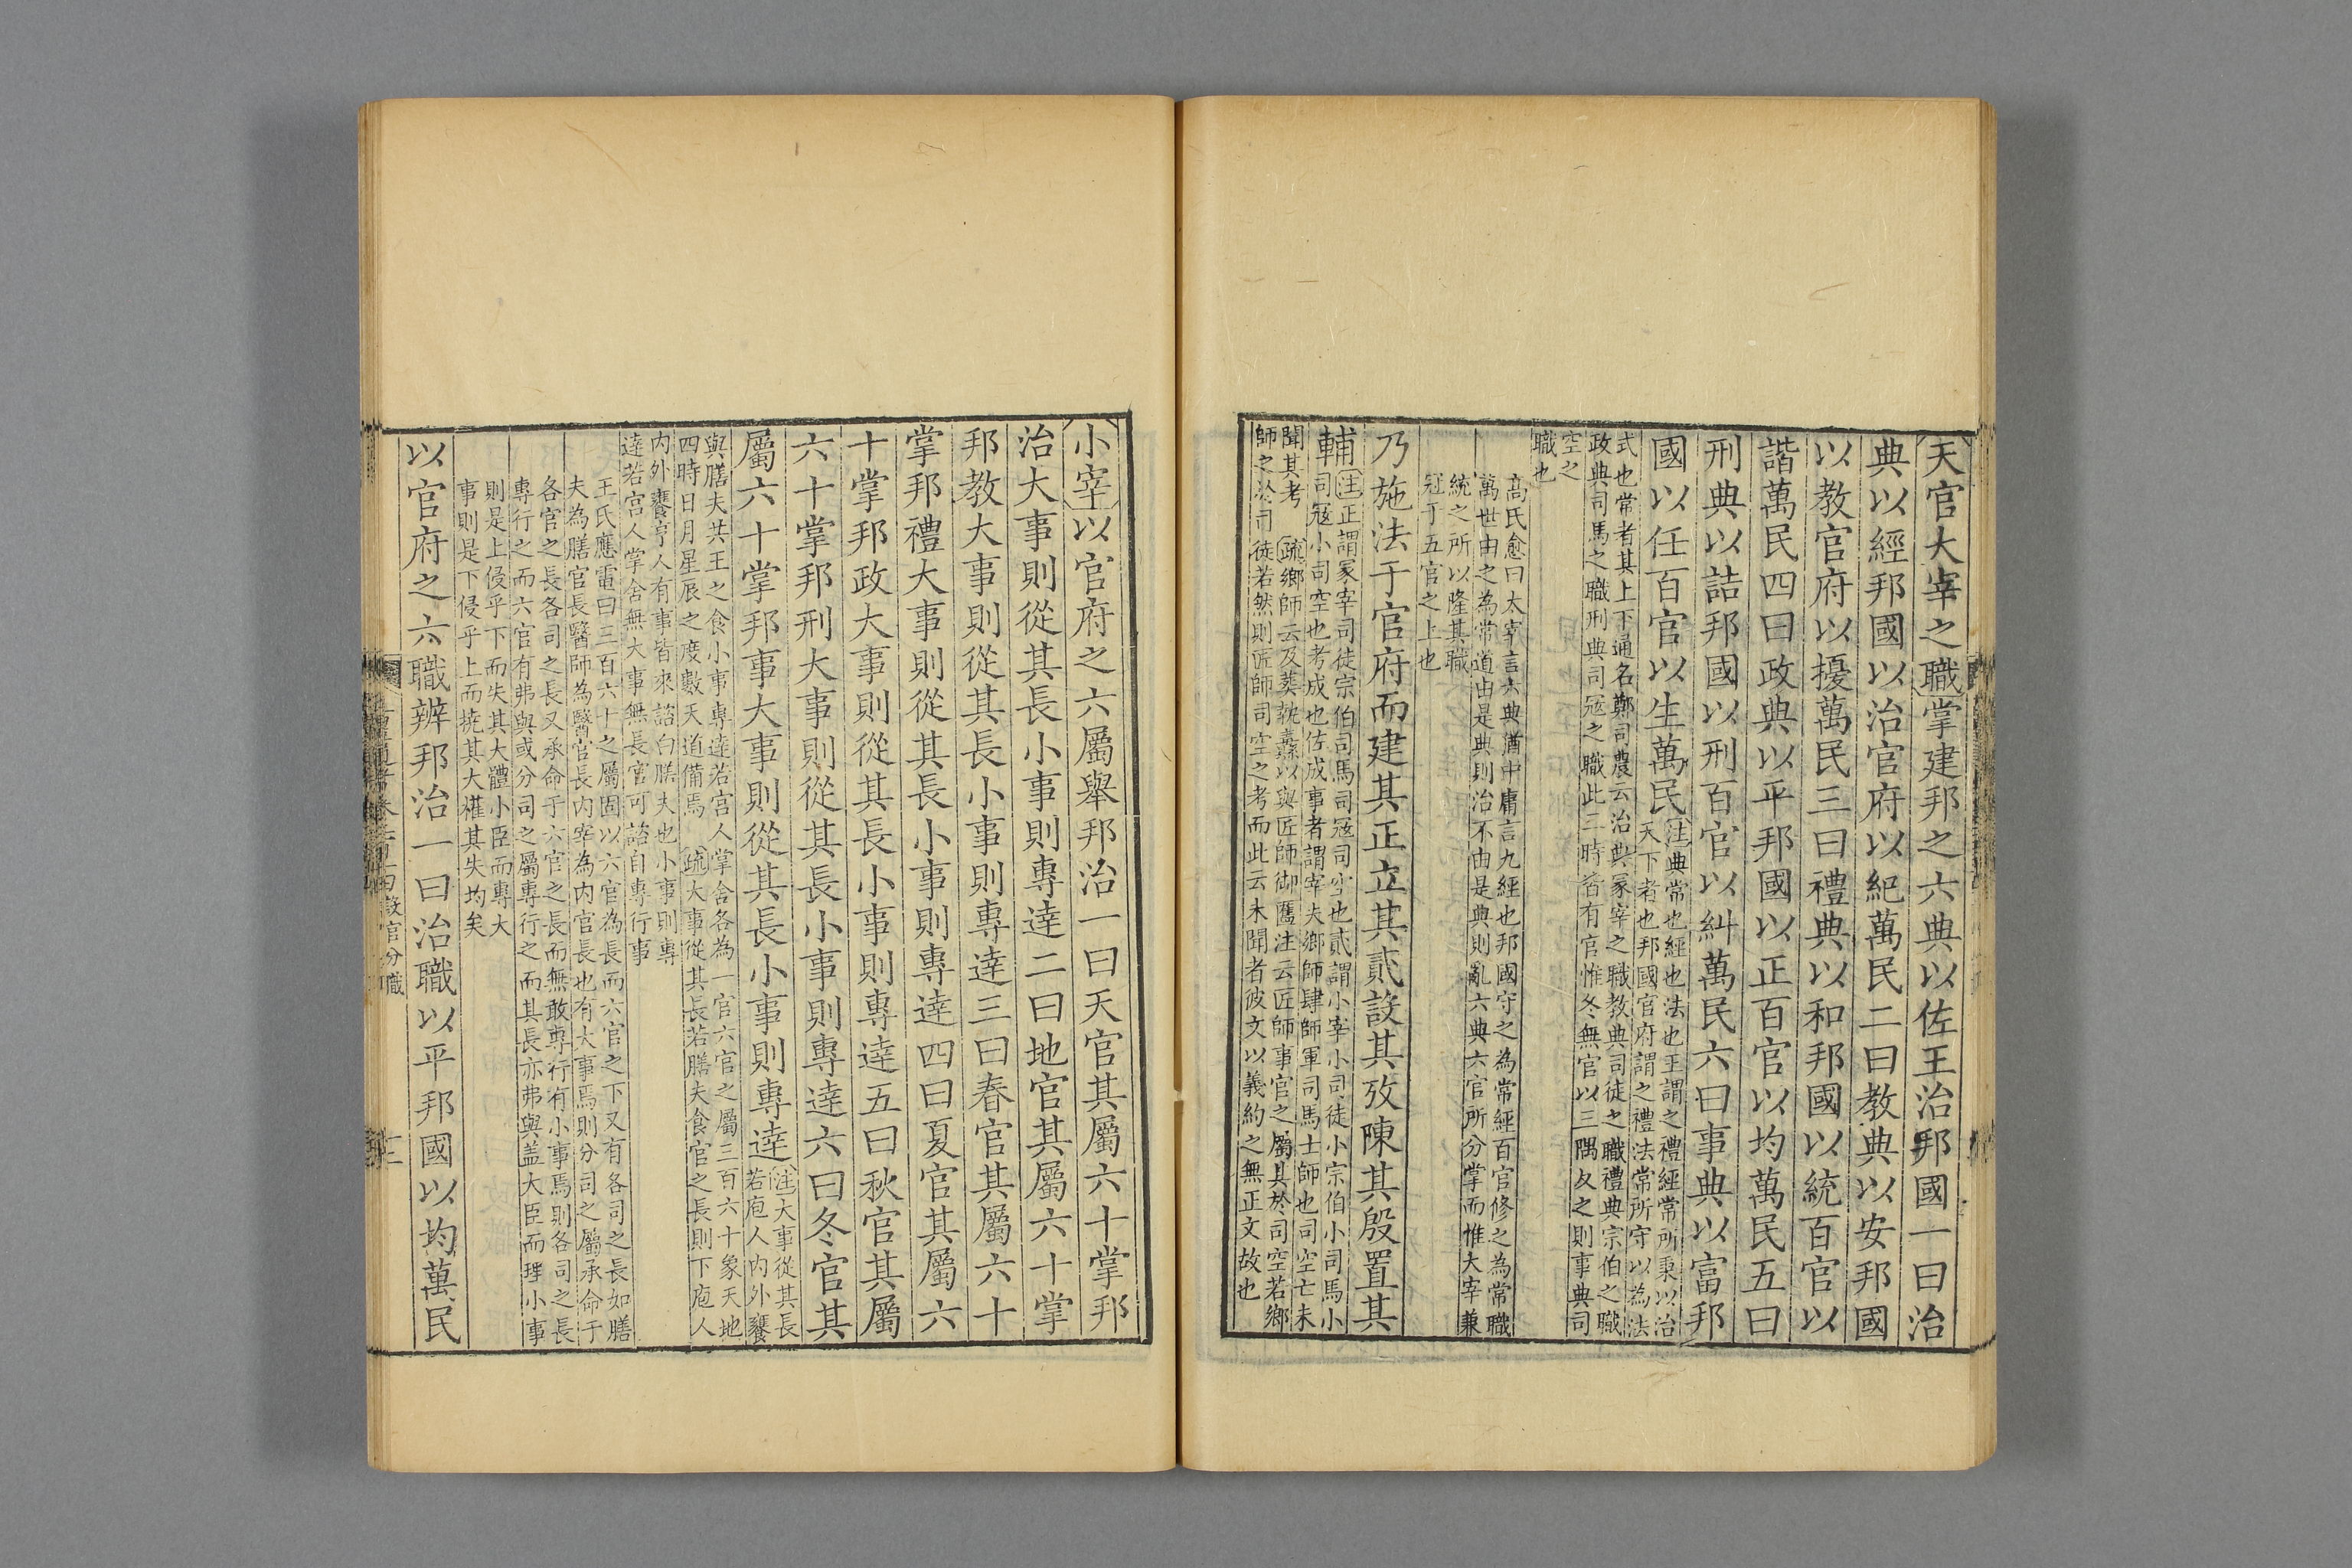 天官大宰之職掌建邦之六典以佐王治邦國一曰治
典以經邦國以治官府以紀萬民二曰教典以安邦國
以教官府以擾萬民三曰禮典以和邦國以統百官以
諧萬民四曰政典以平邦國以正百官以均萬民五曰
刑典以詰邦國以刑百官以糾萬民六曰事典以富邦
國以任百官以生萬民
注典常也經也法也王謂之禮經常所秉以治
天下者也邦國官府謂之禮法常所守以為法
式也常者其上下通名鄭司農云治典冢宰之職教典司徒之職禮典宗伯之職
政典司馬之職刑典司寇之職此三時皆有官惟冬無官以三隅反之則事典司
空之
職也
高氏愈曰太宰言六典猶中庸言九經也邦國守之為常經百官修之為常職
萬世由之為常道由是典則治不由是典則亂六典六官所分掌而惟大宰兼
統之所以隆其職
冠于五官之上也
乃施法于官府而建其正立其貳設其攷陳其殷置其
輔
注正謂冢宰司徒宗伯司馬司寇司空也貳謂小宰小司徒小宗伯小司馬小
司寇小司空也考成也佐成事者謂宰夫鄉師肆師軍司馬士師也司空亡未
聞其考
疏鄉師云及葬執纛以與匠師御匶注云匠師事官之屬其於司空若鄉
師之於司徒若然則匠師司空之考而此云未聞者彼文以義約之無正文故也
小宰以官府之六屬舉邦治一曰天官其屬六十掌邦
治大事則從其長小事則專達二曰地官其屬六十掌
邦教大事則從其長小事則專達三曰春官其屬六十
掌邦禮大事則從其長小事則專達四曰夏官其屬六
十掌邦政大事則從其長小事則專達五曰秋官其屬
六十掌邦刑大事則從其長小事則專達六曰冬官其
屬六十掌邦事大事則從其長小事則專達
注大事從其長
若庖人內外饔
與膳夫共王之食小事專達若宮人掌舍各為一官六官之屬三百六十象天地
四時日月星辰之度數天道備焉
疏大事從其長若膳夫食官之長則下庖人
內外饔亨人有事皆來諮白膳夫也小事則專
達若宮人掌舍無大事無長官可諮自專行事
王氏應電曰三百六十之屬固以六官為長而六官之下又有各司之長如膳
夫為膳官長醫師為醫官長內宰為內官長也有大事焉則分司之屬承命于
各官之長各司之長又承命于六官之長而無敢專行有小事焉則各司之長
專行之而六官有弗與或分司之屬專行之而其長亦弗與蓋大臣而理小事
則是上侵乎下而失其大體小臣而專大
事則是下侵乎上而撓其大權其失均矣
以官府之六職辨邦治一曰治職以平邦國以均萬民
設官分職